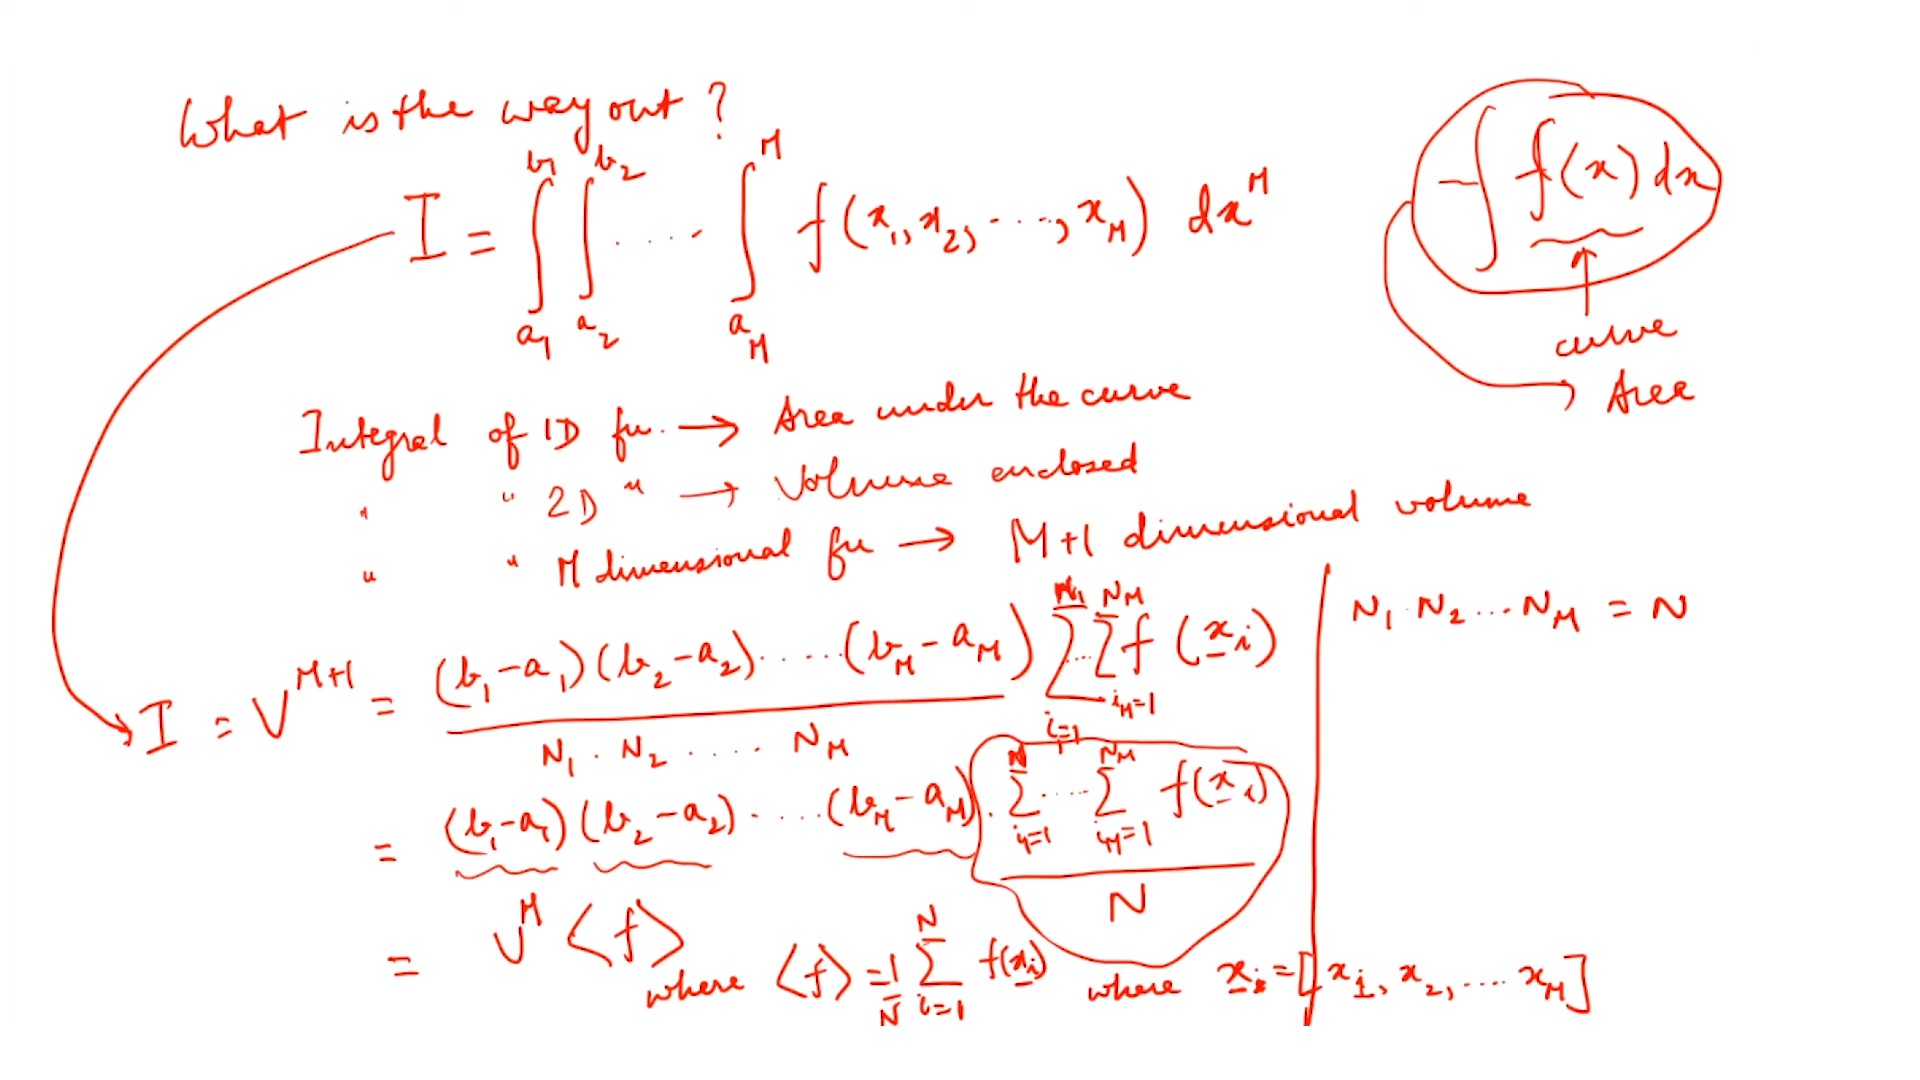 What is the way out ?
I = ∫_{a_1}^{b_1} ∫_{a_2}^{b_2} ..... ∫_{a_M}^{M} f(x_1, x_2, ...., x_M) dx^M
- ∫ f(x) dx
curve
Area
Integral of 1D fn. → Area under the curve
" " 2D " → Volume enclosed
" " M dimensional fn → M+1 dimensional volume
I = V^{M+1} = (b_1-a_1)(b_2-a_2).....(b_M-a_M) / N_1 . N_2 ..... N_M Σ_{i_1=1}^{N_1} ... Σ_{i_M=1}^{N_M} f(x_i)
N_1 . N_2 ... N_M = N
= (b_1-a_1)(b_2-a_2).....(b_M-a_M) . Σ_{i_1=1}^{N} .... Σ_{i_M=1}^{N_M} f(x_i) / N
= V^M <f> where <f> = 1/N Σ_{i=1}^{N} f(x_i) where x_i = [x_1, x_2, .... x_M]